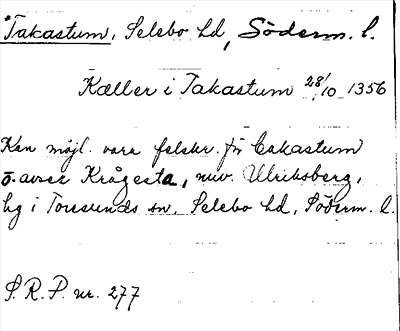 *Takastum, Selebo hd, Söderm. l.
Kæller i Takastum 28/10 1356
Kan möjl. vara felskr. för Cakastum
o. avser Krågesta, nuv. Ulriksberg,
hg i Toresunds sn, Selebo hd, Söderm. l.
S. R. P. nr. 277